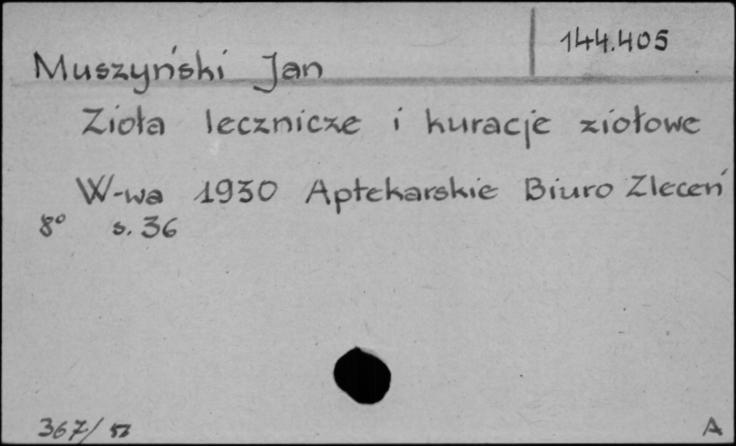 144.405
Muszyński Jan
Zioła lecznicze i kuracje ziołowe
W-wa 1930 Aptekarskie Biuro Zleceń
8° s. 36
367/
A